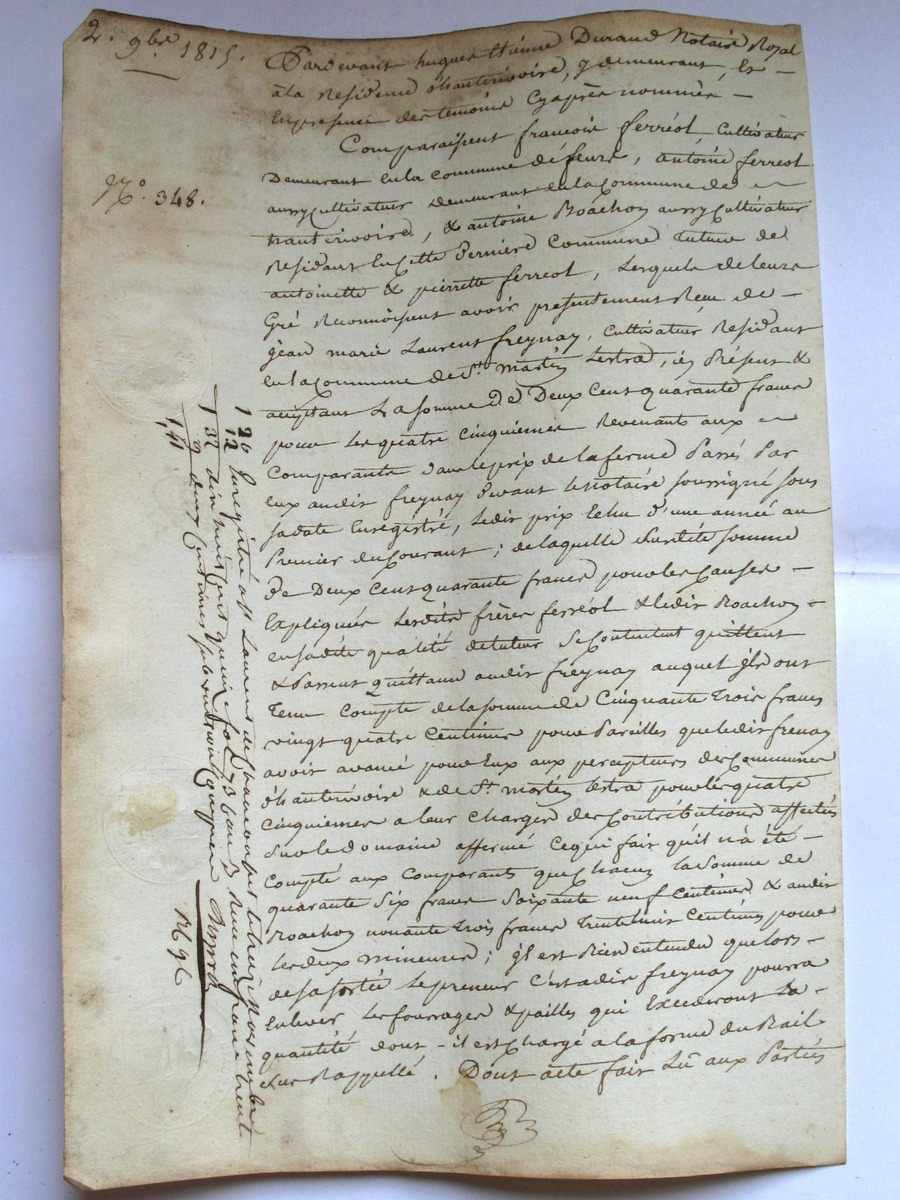 2. 9bre 1815.
N.° 348.
Pardevant hugues Etienne Durand Notaire Royal
àla Residence d'hauterivoire, y demeurant, Et —
Enpresence des temoins Cyaprès nommés —
Comparaissent francois ferréol Cultivateur
Demeurant enla Commune de feurs, antoine ferreol
aussy Cultivateur demeurant enla Commune de
hauterivoire, & antoine Roachon aussy Cultivateur
Residant Encette Derniere Commune tuteur de
antoinette & pierrette ferreol, Lesquels de leurs
Gré Reconnoissent avoir presentement Reçu de —
jean marie Laurent freynay, Cultivateur Residant
en la Commune de St. martin Lestra, icy Présent &
acceptant La somme De Deux Cent quarante francs
pour Les quatre Cinquiemes Revenants aux
Comparants dans le prix de la ferme Passés Par
eux audit freynay Devant le Notaire soussigné sous
sadate Enregistré, Ledit prix Echu d'une année au
Premier du Courant; de laquelle susdite somme
De Deux Cent quarante francs pour les Causes —
Expliquées Lesdits frères ferréol & ledit Roachon —
en sadite qualité de tuteur se Contentent quittent
& Passent quittance audit freynay auquel ils ont
Tenu Compte de la somme de Cinquante Trois francs
vingt quatre Centimes pour Pareilles que ledit frenay
avoit avancé pour Eux aux percepteurs des Communes
d'hauterivoire & de St. martin Lestra pour les quatre
Cinquiemes a leur Charges des Contributions affectées
sur le domaine affermé Ce qui fait qu'il n'a été —
Compté aux Comparants que Chacun la somme de
quarante Six francs Soixante neuf Centimes & audit
Roachon nonante Trois francs Trente huit Centimes pour
Les deux mineures; il est Bien entendu que Lors —
de sa sortie Le preneur C'est adire freynay pourra
Enlever Les fourrages & pailles qui Excederont La —
quantité dont - il est Chargé a la forme du Bail
sus Rappellé. Dont acte fait Lu aux Parties
1 20
12
1 32
9
1,41
Enregistré à St Laurent de Chamousset le huit Novembre
dix huit cent quinze fol. 73 Reçu un franc trente
deux Centimes subvention Comprise